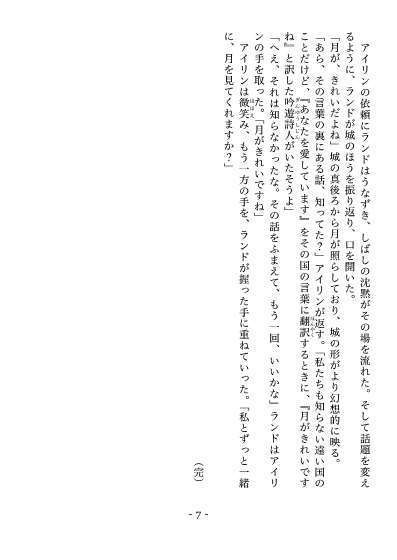 アイリンの依頼にランドはうなずき、しばしの沈黙がその場を流れた。そして話題を変え
るように、ランドが城のほうを振り返り、口を開いた。
「月が、きれいだよね」城の真後ろから月が照らしており、城の形がより幻想的に映る。
「あら、その言葉の裏にある話、知ってた？」アイリンが返す。「私たちも知らない遠い国の
ことだけど、『あなたを愛しています』をその国の言葉に翻訳するときに、『月がきれいです
ね』と訳した吟遊詩人がいたそうよ」
「へえ、それは知らなかったな。その話をふまえて、もう一回、いいかな」ランドはアイリ
ンの手を取った。「月がきれいですね」
　アイリンは微笑み、もう一方の手を、ランドが握った手に重ねていった。「私とずっと一緒
に、月を見てくれますか？」
（完）
- 7 -